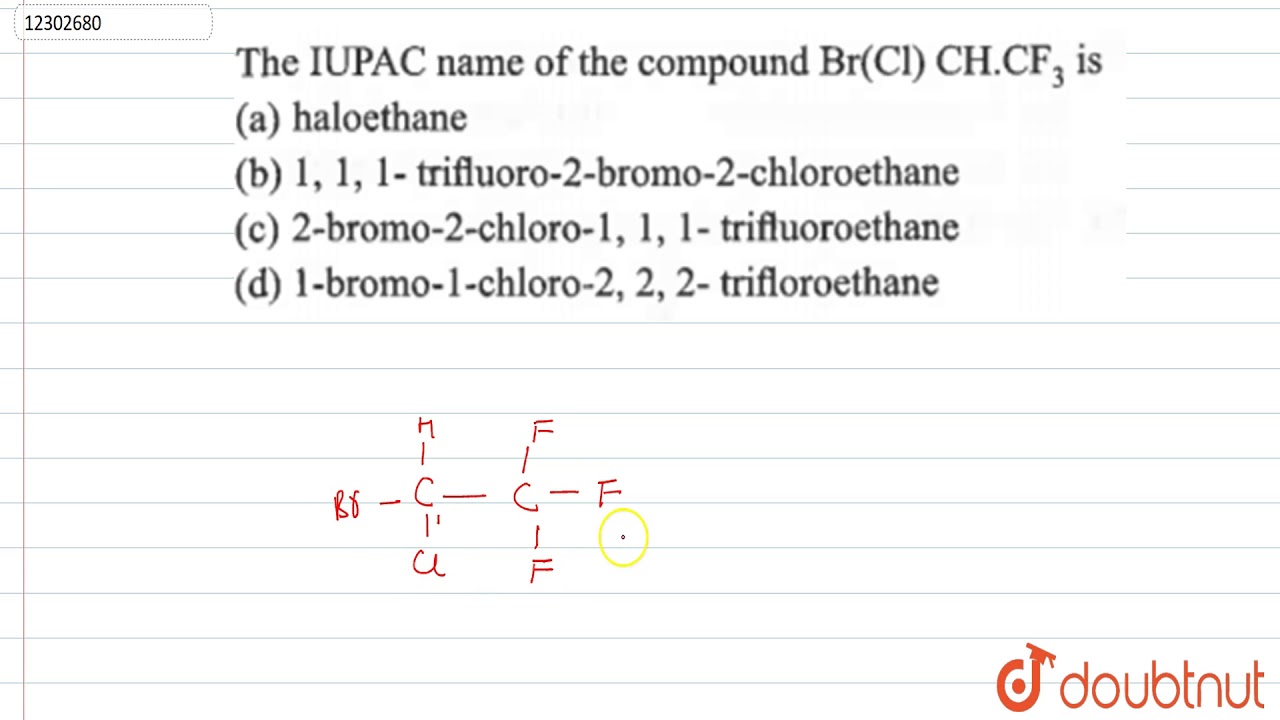 12302680
The IUPAC name of the compound Br(Cl) CH.CF₃ is
(a) haloethane
(b) 1, 1, 1- trifluoro-2-bromo-2-chloroethane
(c) 2-bromo-2-chloro-1, 1, 1- trifluoroethane
(d) 1-bromo-1-chloro-2, 2, 2- trifloroethane
H F
Br - C — C — F
Cl F
doubtnut